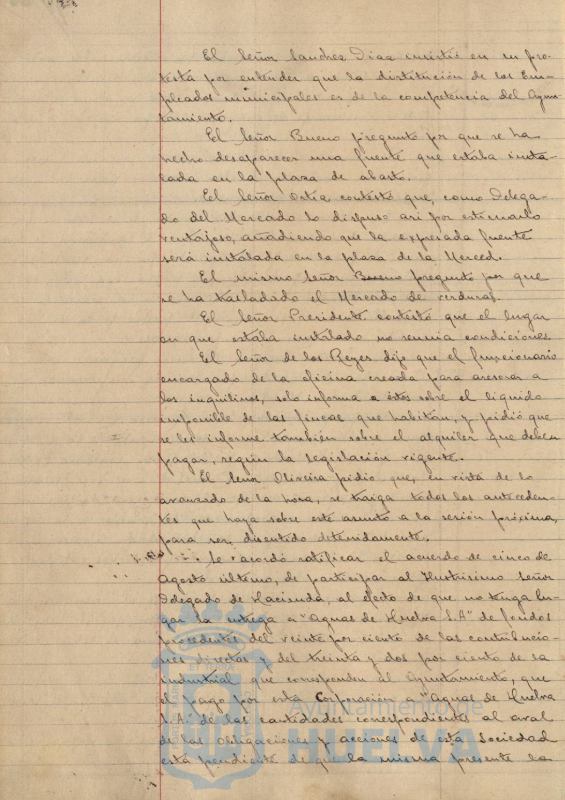 El Señor Sanchez Diaz insistió en su pro-
testa por entender que la distitución de los Em-
pleados municipales es de la competencia del Ayun-
tamiento.
El Señor Bueno preguntó por que se ha
hecho desaparecer una fuente que estaba insta-
lada en la plaza de abasto.
El Señor Ostia contestó que, como Delega-
do del Mercado lo dispuso asi por estimarlo
ventajoso, añadiendo que la expresada fuente
será instalada en la plaza de la Merced.
El mismo Señor Bueno preguntó por que
se ha trasladado el Mercado de verduras.
El Señor Presidente contestó que el lugar
en que estaba instalado no reunia condiciones.
El Señor de los Reyes dijo que el funcionario
encargado de la oficina creada para asesorar a
los inquilinos, solo informa a éstos sobre el liquido
imponible de las fincas que habitan, y pidió que
se les informe también sobre el alquiler que deben
pagar, según la legislación vigente.
El Señor Oliveira pidió que, en vista de lo
avanzado de la hora, se traiga todos los anteceden-
tes que haya sobre este asunto a la sesión próxima,
para ser discutido detenidamente.
Se acordó ratificar el acuerdo de cinco de
Agosto último, de participar al Ilustrisimo Señor
Delegado de Hacienda, al efecto de que no tenga lu-
gar la entrega a "Aguas de Huelva S.A" de fondos
procedentes del veinte por ciento de las contribucio-
nes directas y del treinta y dos por ciento de la
industrial que corresponden al Ayuntamiento, que
el pago por esta Corporación a "Aguas de Huelva
S.A." de las cantidades correspondientes al aval
de las obligaciones y acciones de esta Sociedad
está pendiente de que la misma presente la
Ayuntamiento de
HUELVA